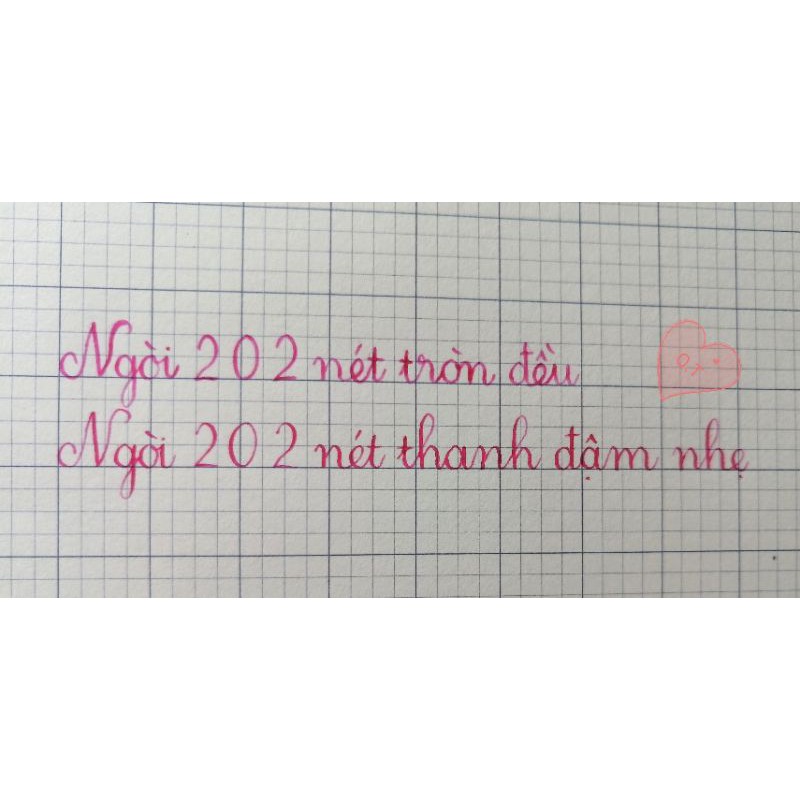 Ngòi 202 nét tròn đều
Ngòi 202 nét thanh đậm nhẹ